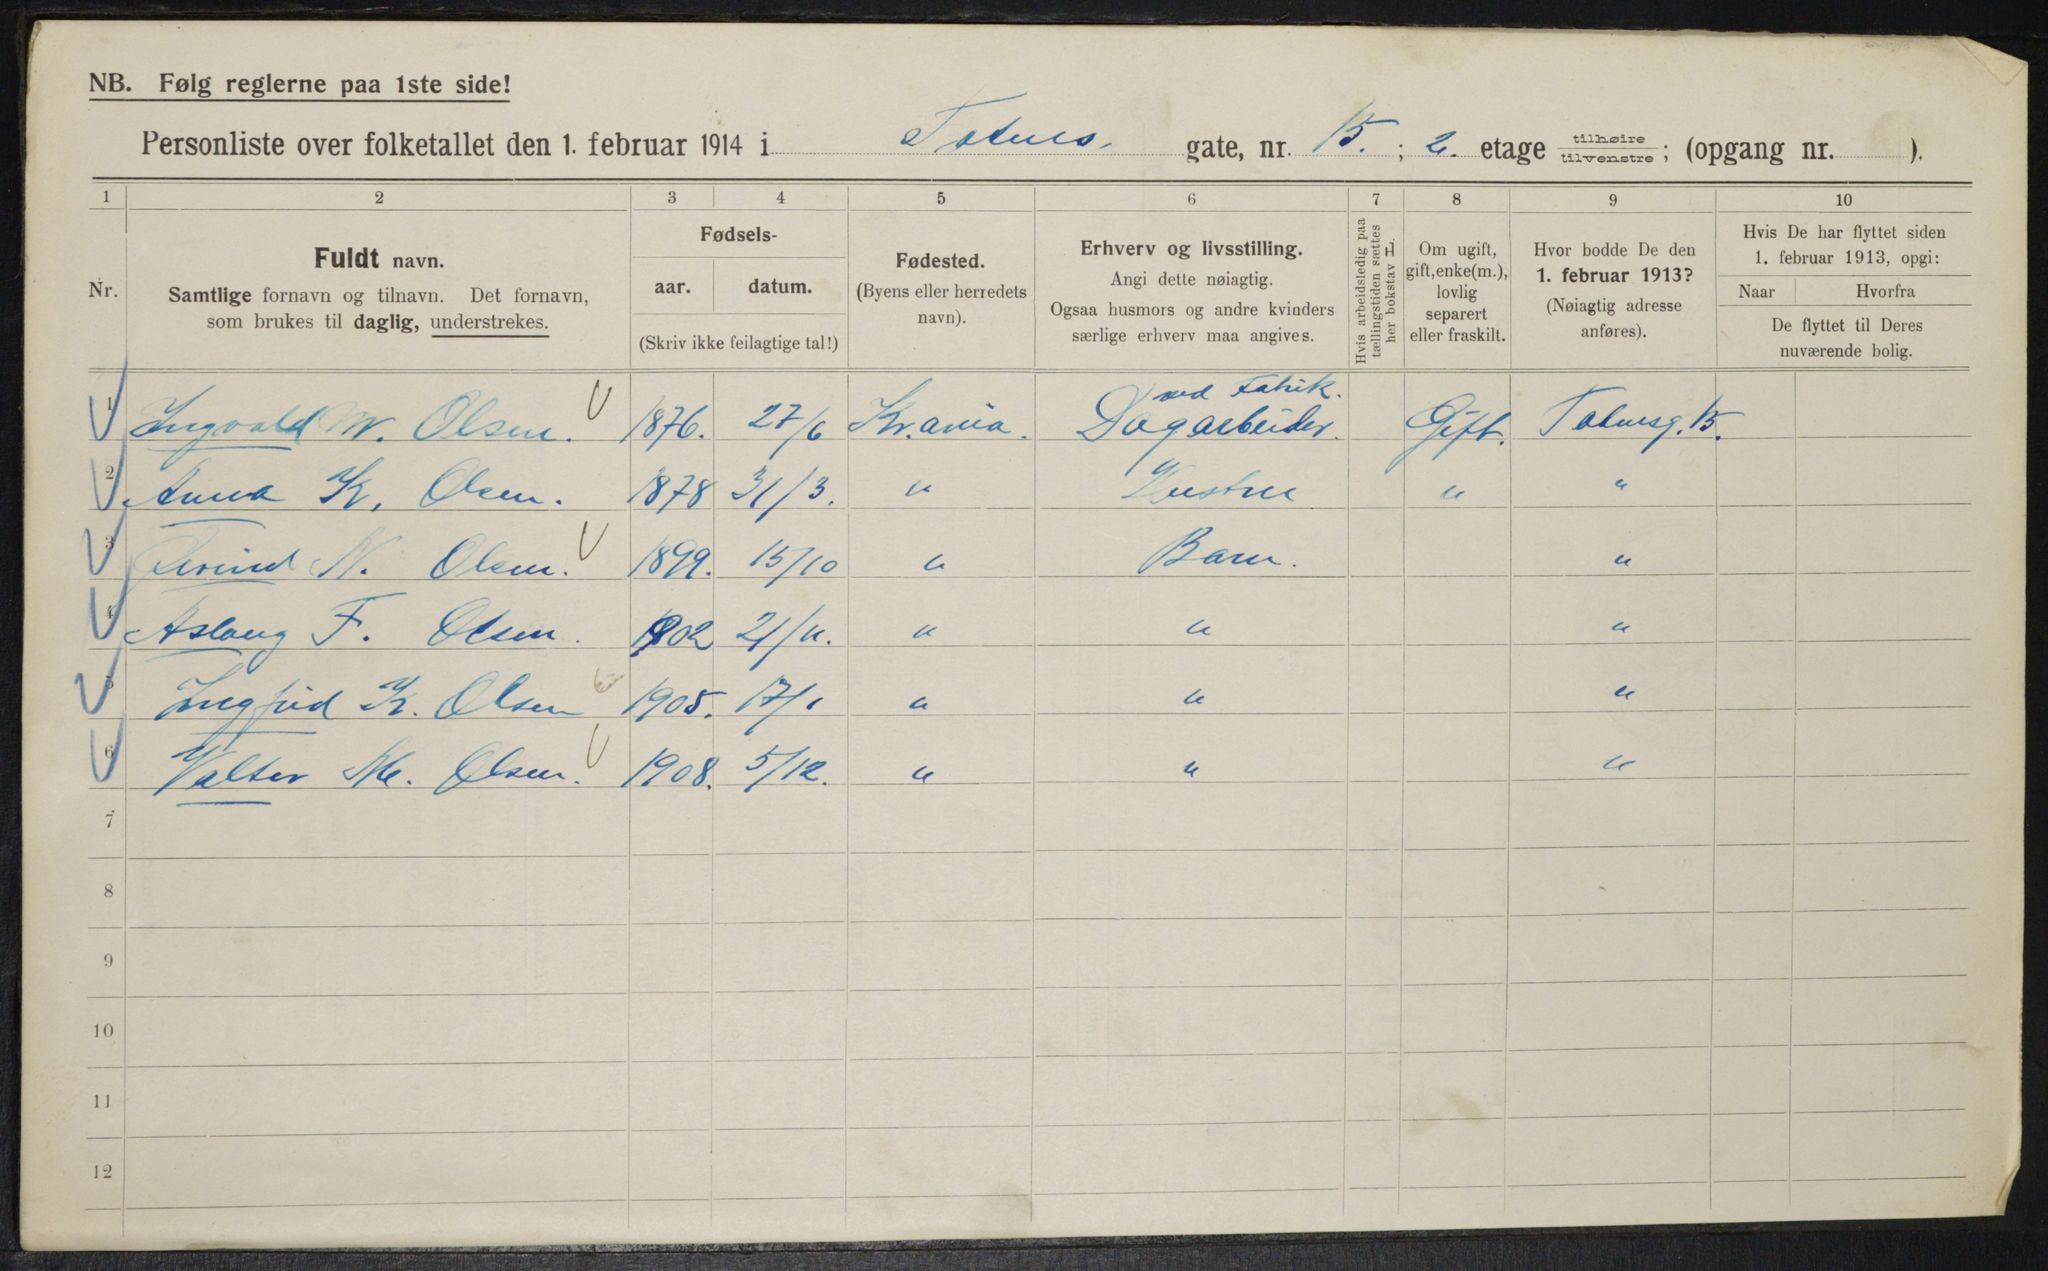 NB. Følg reglerne paa 1ste side!
Personliste over folketallet den 1. februar 1914 i Totens gate, nr. 15. ; 2. etage tilhøire / tilvenstre ; (opgang nr. ).
1 2 3 4 5 6 7 8 9 10
Nr.
Fuldt navn.
Samtlige fornavn og tilnavn. Det fornavn,
som brukes til daglig, understrekes.
Fødsels-
aar. datum.
(Skriv ikke feilagtige tal!)
Fødested.
(Byens eller herredets
navn).
Erhverv og livsstilling.
Angi dette nøiagtig.
Ogsaa husmors og andre kvinders
særlige erhverv maa angives.
Hvis arbeidsledig paa
tællingstiden sættes
her bokstav L.
Om ugift,
gift, enke(m.),
lovlig
separert
eller fraskilt.
Hvor bodde De den
1. februar 1913?
(Nøiagtig adresse
anføres).
Hvis De har flyttet siden
1. februar 1913, opgi:
Naar Hvorfra
De flyttet til Deres
nuværende bolig.
ved Fabrik.
1 Ingvald W. Olsen. 1876. 27/6 Kr.ania. Dagarbeider. Gift. Totensg. 15.
2 Anna K. Olsen. 1878 31/3. " Hustru " "
3 Eivind N. Olsen. 1899. 15/10 " Barn. "
4 Aslaug F. Olsen. 1902 21/11. " " "
5 Ingfrid K. Olsen 1905. 17/1 " " "
6 Valter M. Olsen. 1908. 5/12. " " "
7
8
9
10
11
12